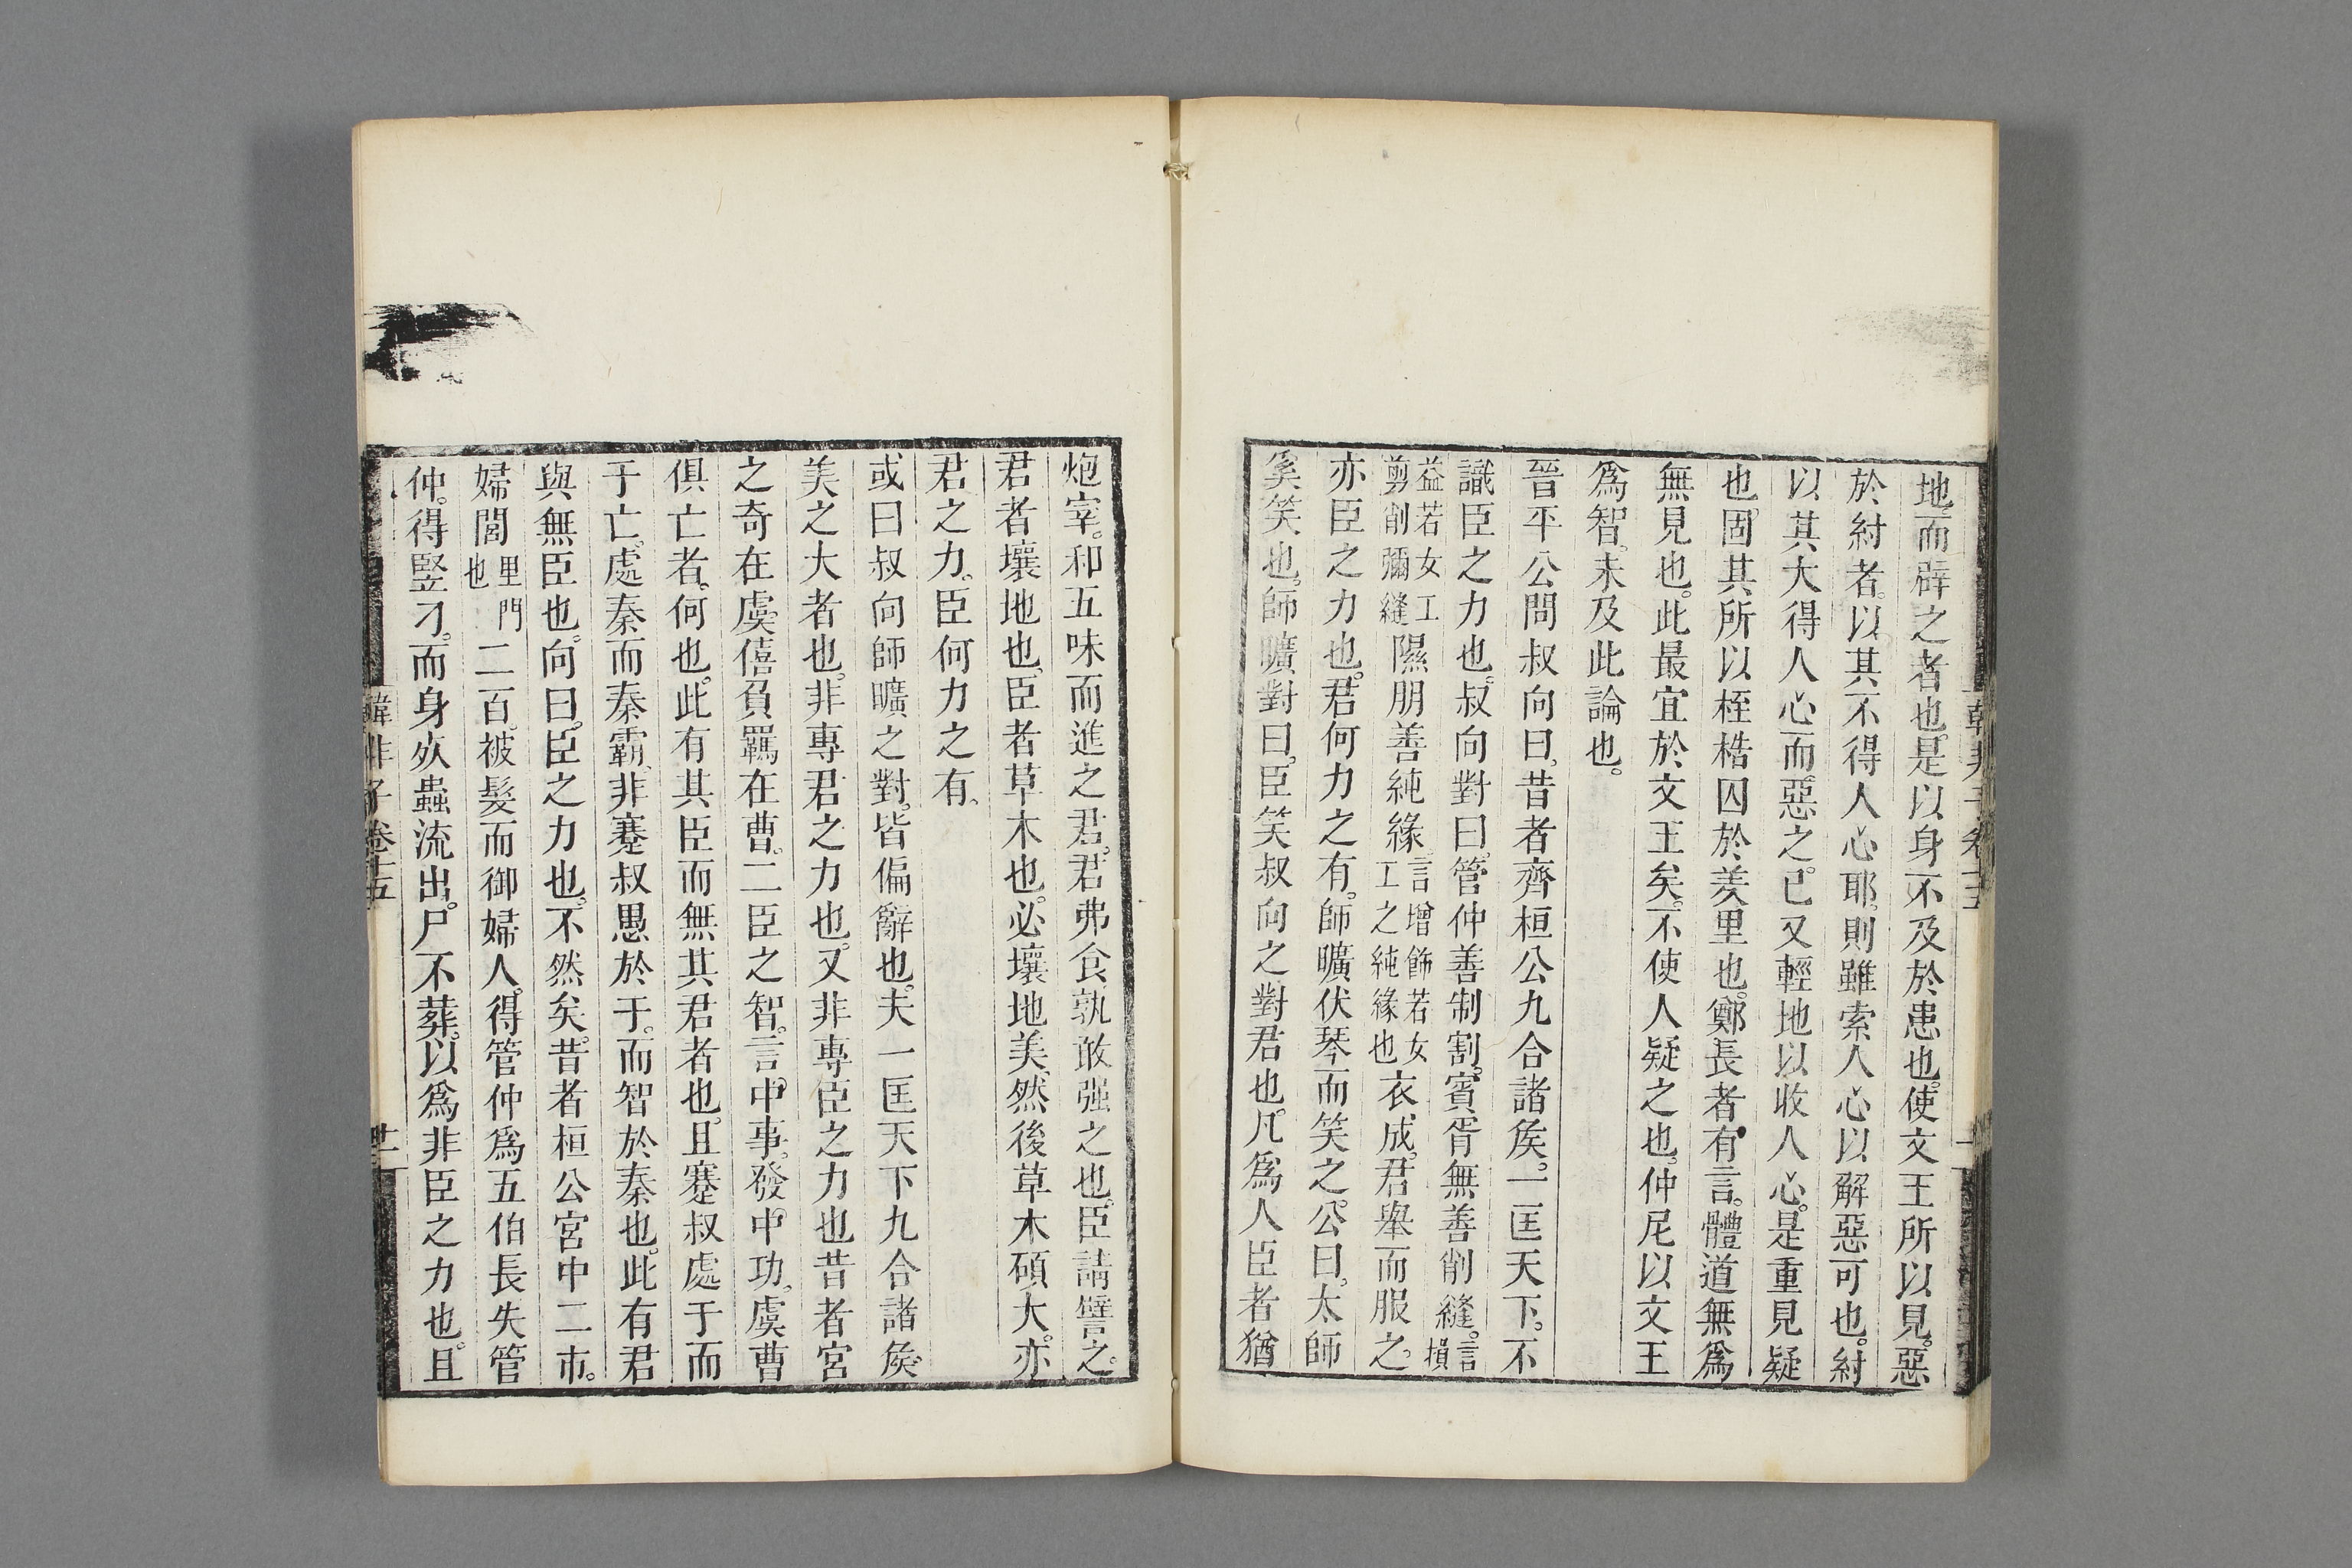 地。而辟之者也。是以身不及於患也。使文王所以見惡
於紂者。以其不得人心耶。則雖索人心以解惡可也。紂
以其大得人心而惡之。已又輕地以收人心。是重見疑
也。固其所以桎梏囚於羑里也。鄭長者有言。體道無爲
無見也。此最宜於文王矣。不使人疑之也。仲尼以文王
爲智。未及此論也。
晉平公問叔向曰。昔者齊桓公九合諸矦。一匡天下。不
識臣之力也。叔向對曰。管仲善制割。賓胥無善削縫。言損
益若女工剪削彌縫隰朋善純緣。言增飾若女工之純緣也衣成。君舉而服之。
亦臣之力也。君何力之有。師曠伏琴而笑之。公曰。太師
奚笑也。師曠對曰。臣笑叔向之對君也。凡爲人臣者猶
炮宰。和五味而進之君。君弗食孰敢强之也。臣請譬之。
君者壤地也。臣者草木也。必壤地美。然後草木碩大。亦
君之力。臣何力之有。
或曰叔向師曠之對。皆偏辭也。夫一匡天下九合諸矦。
美之大者也。非專君之力也。又非專臣之力也昔者宮
之奇在虞。僖負羈在曹。二臣之智。言中事。發中功。虞曹
俱亡者。何也。此有其臣而無其君者也。且蹇叔處于而
于亡。處秦而秦霸。非蹇叔愚於于。而智於秦也。此有君
與無臣也。向曰。臣之力也。不然矣。昔者桓公宮中二市。
婦閭里門也二百。被髮而御婦人。得管仲爲五伯長失管
仲。得竪刁。而身死蟲流出。尸不葬。以爲非臣之力也。且
韓非子卷十五